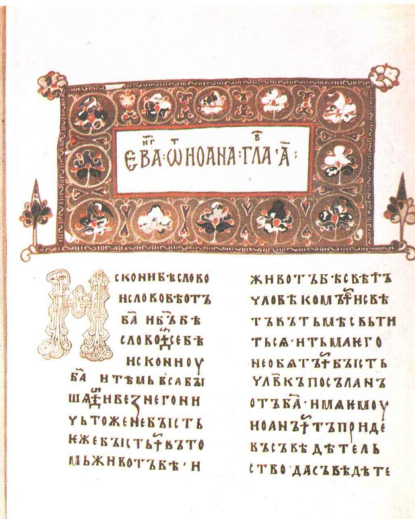 ЕВА҃Г҃Л : Ѡ҃Т ИОАНА : ГЛА҃В · А҃ :
ИСКОНИ БѢ СЛОВО
И СЛОВО БѢ ОТЪ
БА҃ И БЪ҃ БѢ
СЛОВО · СЕ БѢ
ИСКОНИ ОУ
БА҃ И ТѢМЬ ВЬСА БЫ
ША И БЕЗ НЕГО НИ
ЧЬТОЖЕ НЕ БЫСТЬ
ѤЖЕ БЫСТЬ ВЪ ТО
МЬ ЖИВОТЪ БѢ · И
ЖИВОТЪ БѢ СВѢТЪ
ЧЛОВѢКОМЪ И СВѢ
ТЪ ВЪ ТЬМѢ СВЬТИ
ТЬСѦ · И ТЬМА ѤГО
НЕ ОБѦТЪ БЫСТЬ
ЧЛ҃ВКЪ ПОСЪЛАНЪ
ОТЪ БА҃ · ИМѦ ѤМОУ
ИОАНЪ ТЪ ПРИДЕ
ВЪ СЪВѢДѢТЕЛЬ
СТВО ДА СЪВѢДѢТЕ